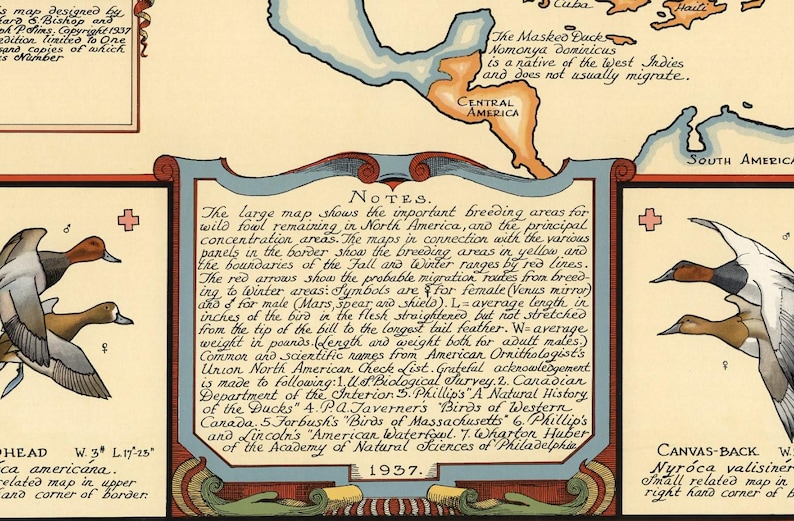 s map designed by
ard E. Bishop and
ph P. Sims. Copyright 1937
edition limited to One
sand copies of which
is Number
Cuba
Haiti
The Masked Duck
Nomonyx dominicus
is a native of the West Indies
and does not usually migrate.
CENTRAL
AMERICA
SOUTH AMERICA
NOTES.
The large map shows the important breeding areas for
wild fowl remaining in North America, and the principal
concentration areas. The maps in connection with the various
panels in the border show the breeding areas in yellow and
the boundaries of the Fall and Winter ranges by red lines.
The red arrows show the probable migration routes from breed-
ing to Winter areas: Symbols are ♀ for female (Venus mirror)
and ♂ for male (Mars, spear and shield). L = average length in
inches of the bird in the flesh straightened but not stretched
from the tip of the bill to the longest tail feather. W = average
weight in pounds. (Length and weight both for adult males.)
Common and scientific names from American Ornithologist's
Union North American Check List. Grateful acknowledgement
is made to following: 1. U.S. Biological Survey. 2. Canadian
Department of the Interior. 3. Phillip's "A Natural History
of the Ducks" 4. P.A. Taverner's "Birds of Western
Canada. 5. Forbush's "Birds of Massachusetts" 6. Phillip's
and Lincoln's "American Waterfowl. 7. Wharton Huber
of the Academy of Natural Sciences of Philadelphia.
1937.
♂
♀
DHEAD W. 3# L. 17"-23"
ca americána.
related map in upper
and corner of border.
♂
♀
CANVAS-BACK W.
Nyróca valisiner
Small related map in
right hand corner of b